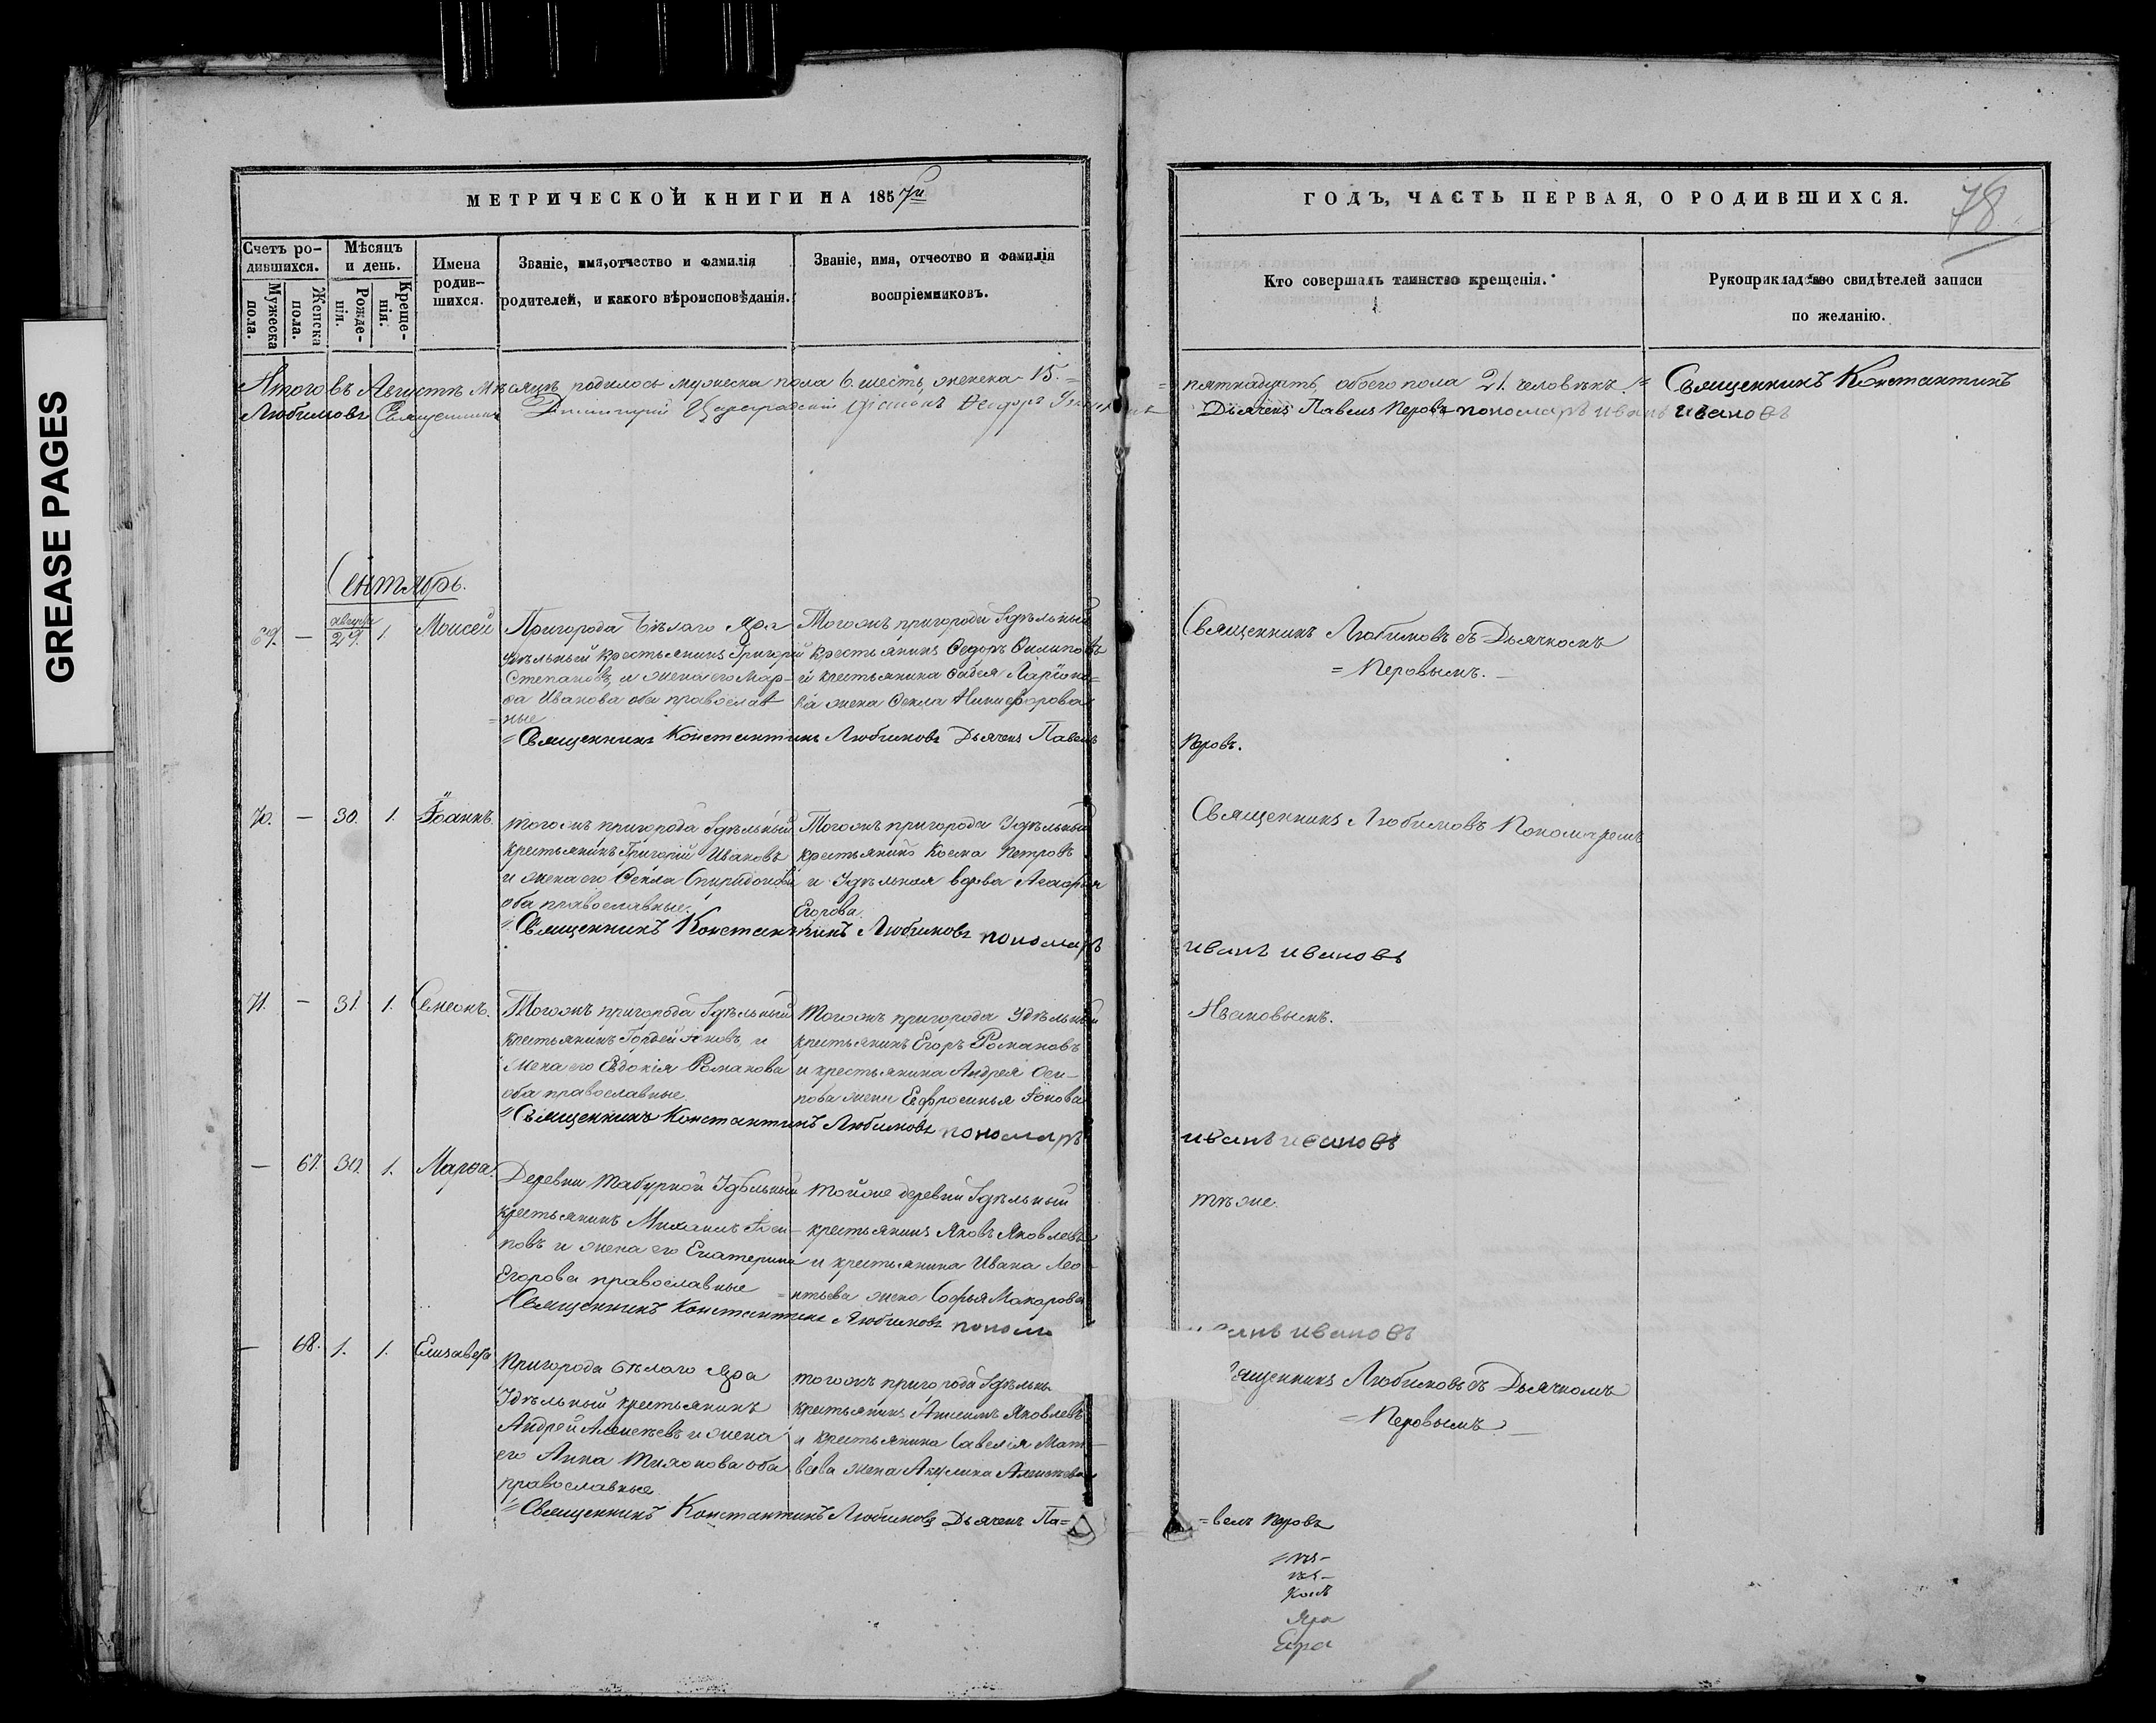 GREASE PAGES
МЕТРИЧЕСКОЙ КНИГИ НА 1857й
ГОДЪ, ЧАСТЬ ПЕРВАЯ, О РОДИВШИХСЯ.
78.
Счетъ ро-
дившихся.
Мужеска
пола.
Женска
пола.
Мѣсяцъ
и день.
Рожде-
нія.
Креще-
нія.
Имена
родив-
шихся.
Званіе, имя, отчество и фамилія
родителей, и какого вѣроисповѣданія.
Званіе, имя, отчество и фамилія
воспріемниковъ.
Кто совершалъ таинство крещенія.
Рукоприкладство свидѣтелей записи
по желанію.
Итого въ Августѣ мѣсяцѣ родилось мужеска пола 6. шесть, женска 15. =
= пятнадцать, обоего пола 21. человѣкъ. = Священникъ Константинъ
Любимовъ Священникъ Димитрій Цареградскій Діаконъ Феодоръ
Дьячекъ Павелъ Перовъ пономарь иванъ ивановъ
Сентябрь.
69. — августа 29. 1. Моисей
Пригорода Бѣлаго Яра
удѣльный крестьянинъ Григорій
Степановъ, и жена его Мар-
ѳа Иванова оба православ
= ные
Тогожъ пригорода Удѣльный
крестьянинъ Ѳедоръ Филиповъ
и крестьянина Савел Ларіоно=
ва жена Ѳекла Никифорова
Священникъ Любимовъ съ Дьячкомъ
= Перовымъ. —
= Священникъ Константинъ Любимовъ Дьячекъ Павелъ
Перовъ.
70. — 30. 1. Іоаннъ.
тогожъ пригорода Удѣльный
крестьянинъ Григорій Ивановъ
и жена его Ѳекла Спиридонова
оба православные.
Тогожъ пригорода Удѣльный
крестьянинъ Косма Петровъ
и Удѣльная вдова
Егорова.
Священникъ Любимовъ Пономаремъ
= Священникъ Константинъ Любимовъ пономарь
иванъ ивановъ
71. — 31. 1. Симеонъ.
Тогожъ пригорода Удѣльный
крестьянинъ Гордей Іоновъ, и
жена его Евдокія Романова
оба православные.
тогожъ пригорода Удѣльный
крестьянинъ Егоръ Романовъ
и крестьянина Андрея Оси-
пова жена Ефросинья Іонова
Ивановымъ.
= Священникъ Константинъ Любимовъ пономарь
иванъ ивановъ
— 67. 30. 1. Марѳа.
Деревни Табурной Удѣльный
крестьянинъ Михаилъ Оси-
повъ и жена его Екатерина
Егорова православные
тойже деревни Удѣльный
крестьянинъ Яковъ Яковлевъ
и крестьянина Ивана Лео-
= нтьева жена Софья Макарова
тѣже.
Священникъ Константинъ Любимовъ поном
ванъ ивановъ
— 68. 1. 1. Елизавета
Пригорода бѣлаго Яра
Удѣльный крестьянинъ
Андрей Алексѣевъ и жена
его Анна Тихонова оба
православные.
тогожъ пригорода Удѣльны
крестьянинъ Анисимъ Яковлевъ
и крестьянина Савелія Мат-
вѣева жена Акулина Алексѣева
ященникъ Любимовъ съ Дьячкомъ
= Перовымъ. —
= Священникъ Константинъ Любимовъ Дьячекъ Па=
= велъ Перовъ
Яра